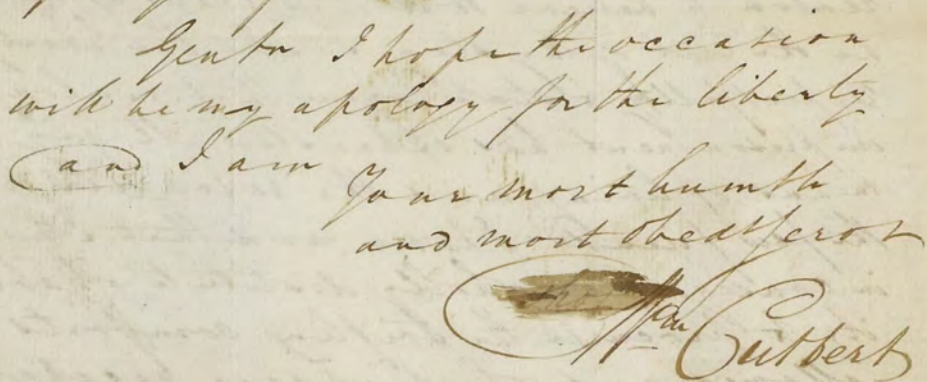 Gentn I hope the occasion
will be my apology for the liberty
and I am
Your most humble
and most obedt Servt
Wm Cuthbert